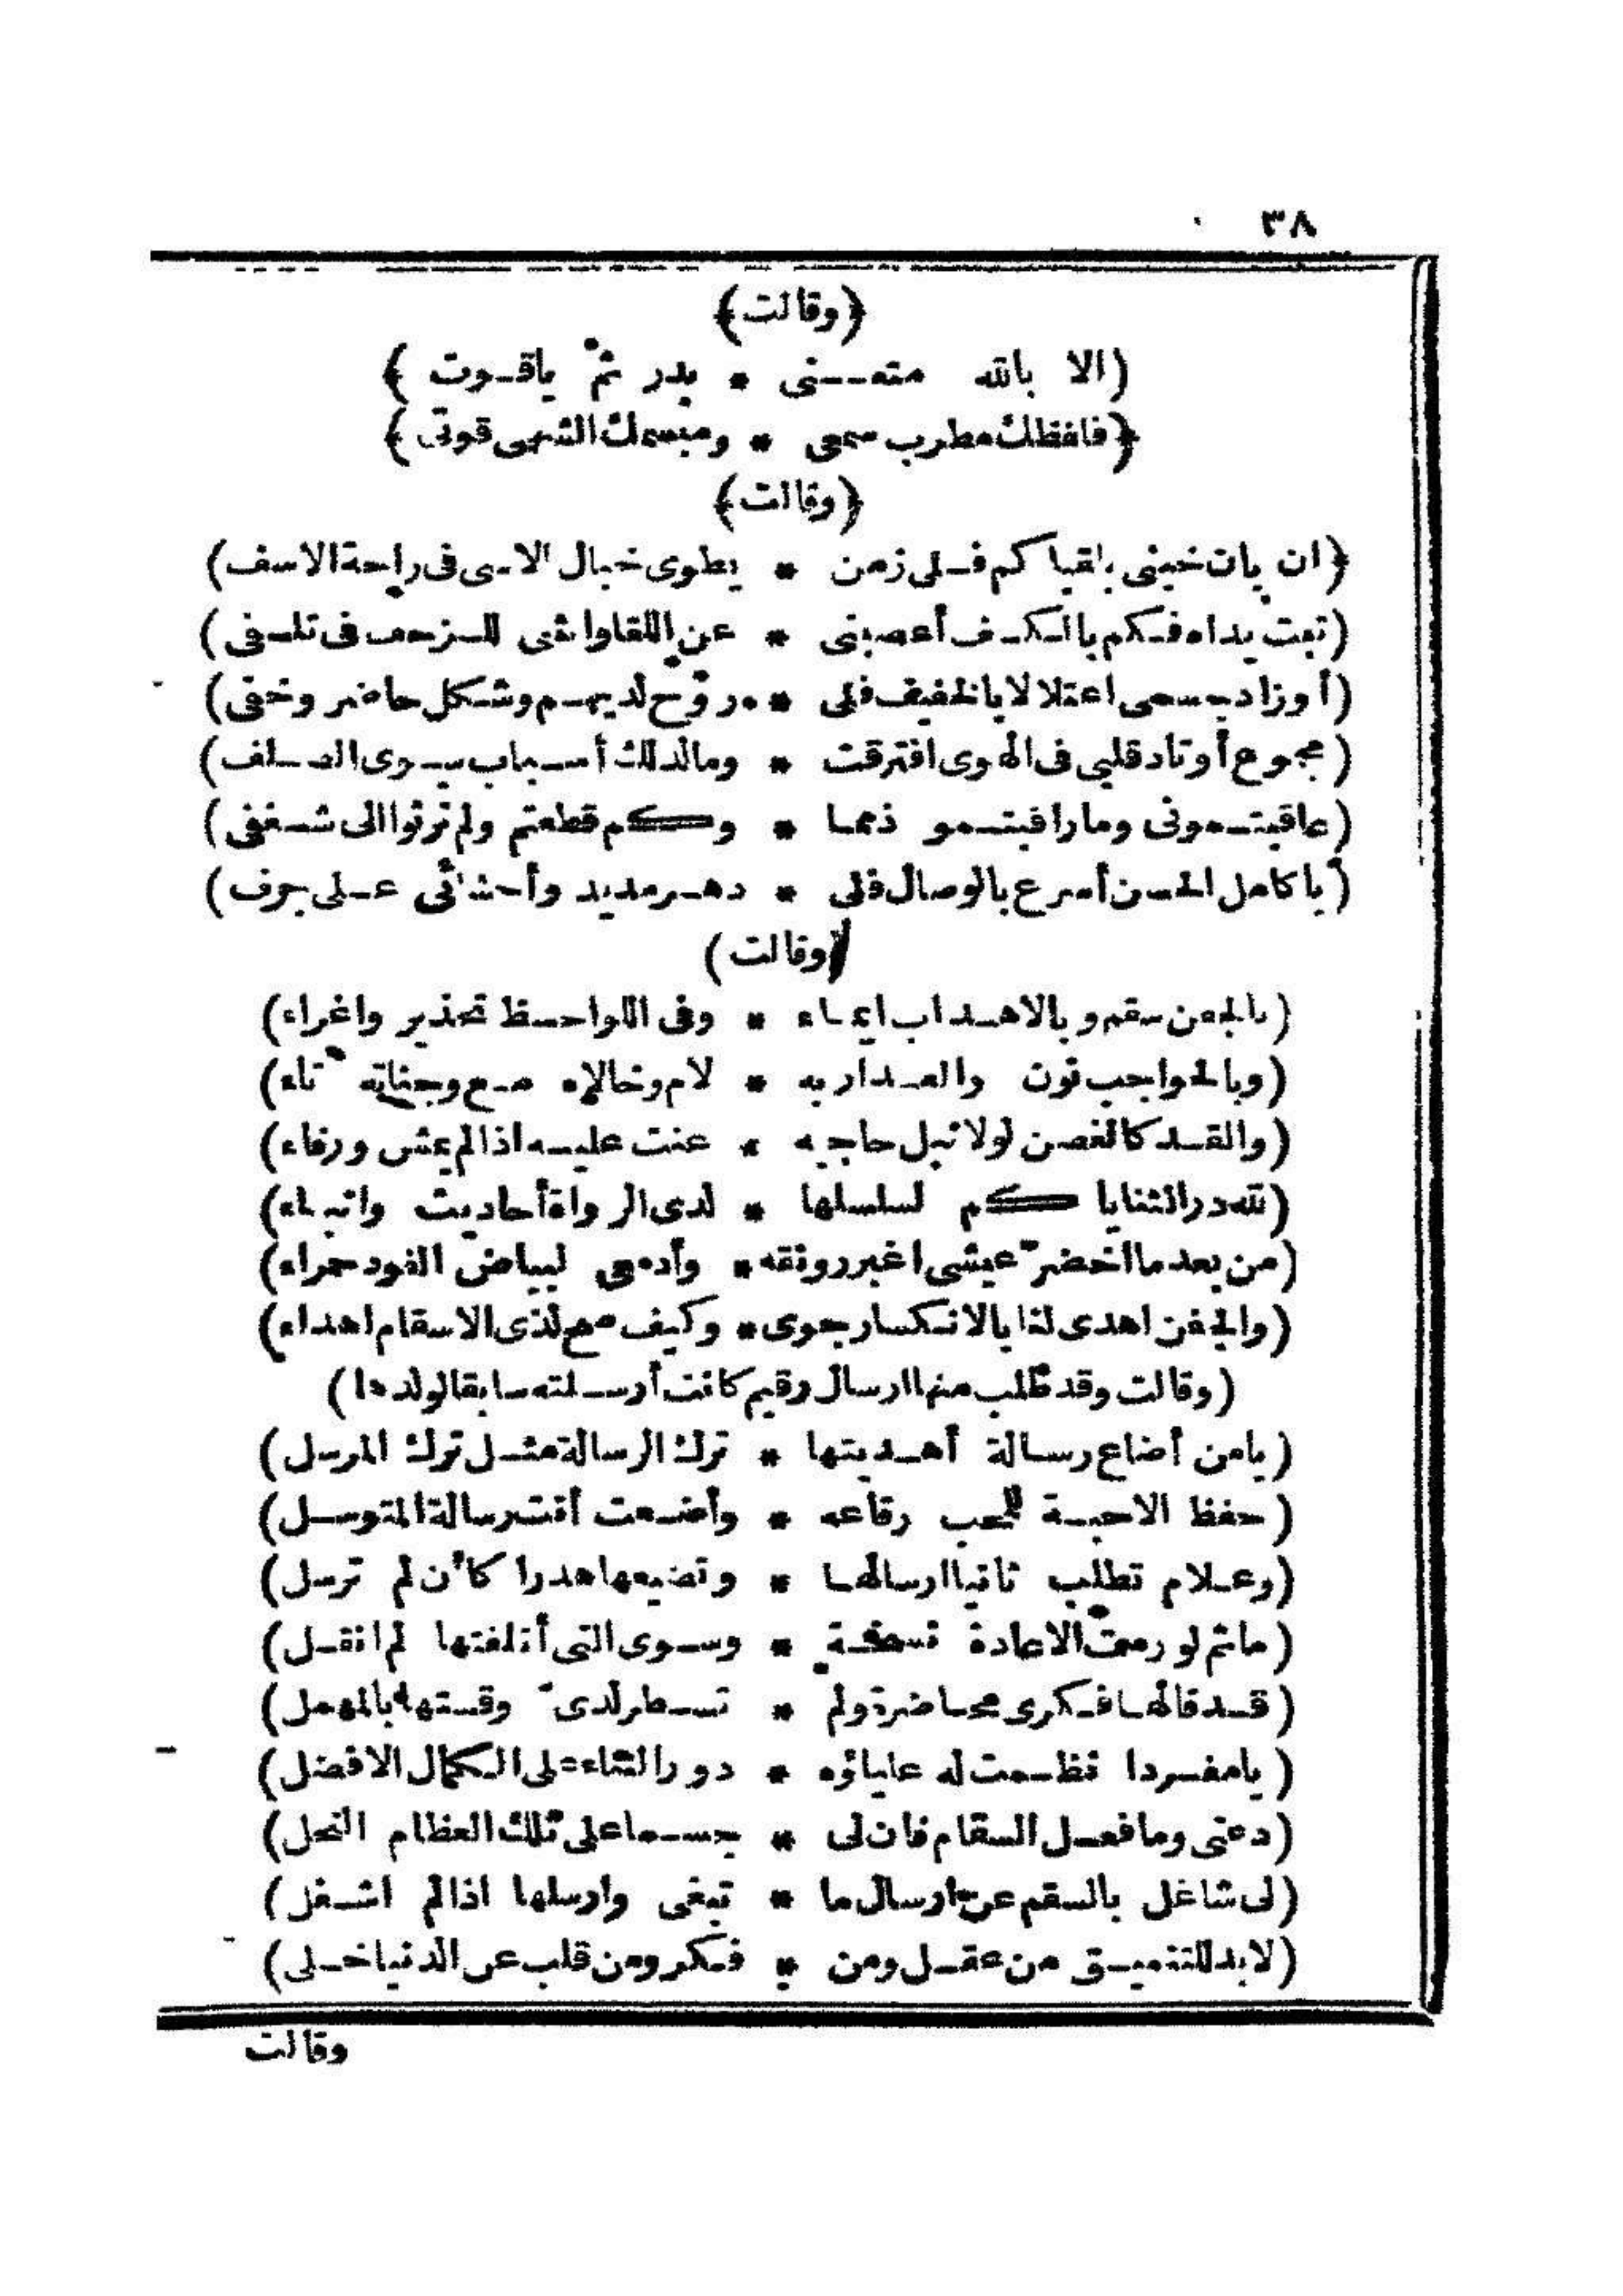 ٣٨
﴿وقالت﴾
(الا بالله متعـــنى * بدر ثم ياقــوت ﴾
﴿فلفظك مطرب سمعى * ومبسمك الشهى قوتى ﴾
﴿وقالت﴾
﴿ان بان خبنى بلقياكم فــلى زمن * يطوى خبال الاسى فى راحة الاسف)
(تبت يداه فـكم بالـكـف أعصبنى * عن اللقا وانثنى للـزحف فى تلــفى)
(أوزاد جسمى اعتلالا بالخفيف فلى * مروّح لديهـم وشكل حاضر وخفى)
(مجموع أوتاد قلبى فى الهوى افترقت * ومالذلك أسـباب ســوى الصـلف)
(عاقبتــمونى وما راقبتــمو ذمما * وكم قطعتم ولم ترثوا الى شــغفى)
(يا كامل الحسن أسرع بالوصال فلى * دهــر مديد وأحشائى عــلى جرف)
(وقالت)
(بالجفن سقم وبالاهــداب ايماء * وفى اللواحــظ تحذير واغراء)
(وبالحواجب نون والعــذار به * لام وخالاه مـع وجناته تاء)
(والقــد كالغصن لولا نبل حاجبه * غنت عليــه اذا لم يمش ورقاء)
(لله در الثنايا كم لسلسلها * لدى الرواة أحاديث وانباء)
(من بعد ما اخضر عيشى اغبر رونقه * وأدمعى لبياض الفود حمراء)
(والجفن اهدى لنا بالانكسار جوى * وكيف صح لذى الاسقام اهداء)
(وقالت وقد طلب منها ارسال رقيم كانت أرســلته سابقا لولدها)
(يامن أضاع رسالة أهــديتها * ترك الرسالة مثــل ترك المرسل)
(حفظ الاحبــة للمحب رقاعه * وأضــعت أنت رسالة المتوســل)
(وعــلام تطلب ثانيا ارسالها * وتضيعها هدرا كأن لم ترسل)
(ماثم لو رمت الاعادة نسخــة * وســوى التى أتلفتها لم انقــل)
(قــد قالها فـكرى محاضرة ولم * تســطر لدىّ وقستها بالمهمل)
(يا مفــردا نظــمت له علياؤه * درر الثناء على الـكمال الافضل)
(دعنى وما فعــل السقام فان لى * جســما على تلك العظام النحل)
(لى شاغل بالسقم عن ارسال ما * تبغى وارسلها اذا لم اشــغل)
(لابد للتنميــق من عقــل ومن * فـكر ومن قلب عن الدنيا خــلى)
وقالت